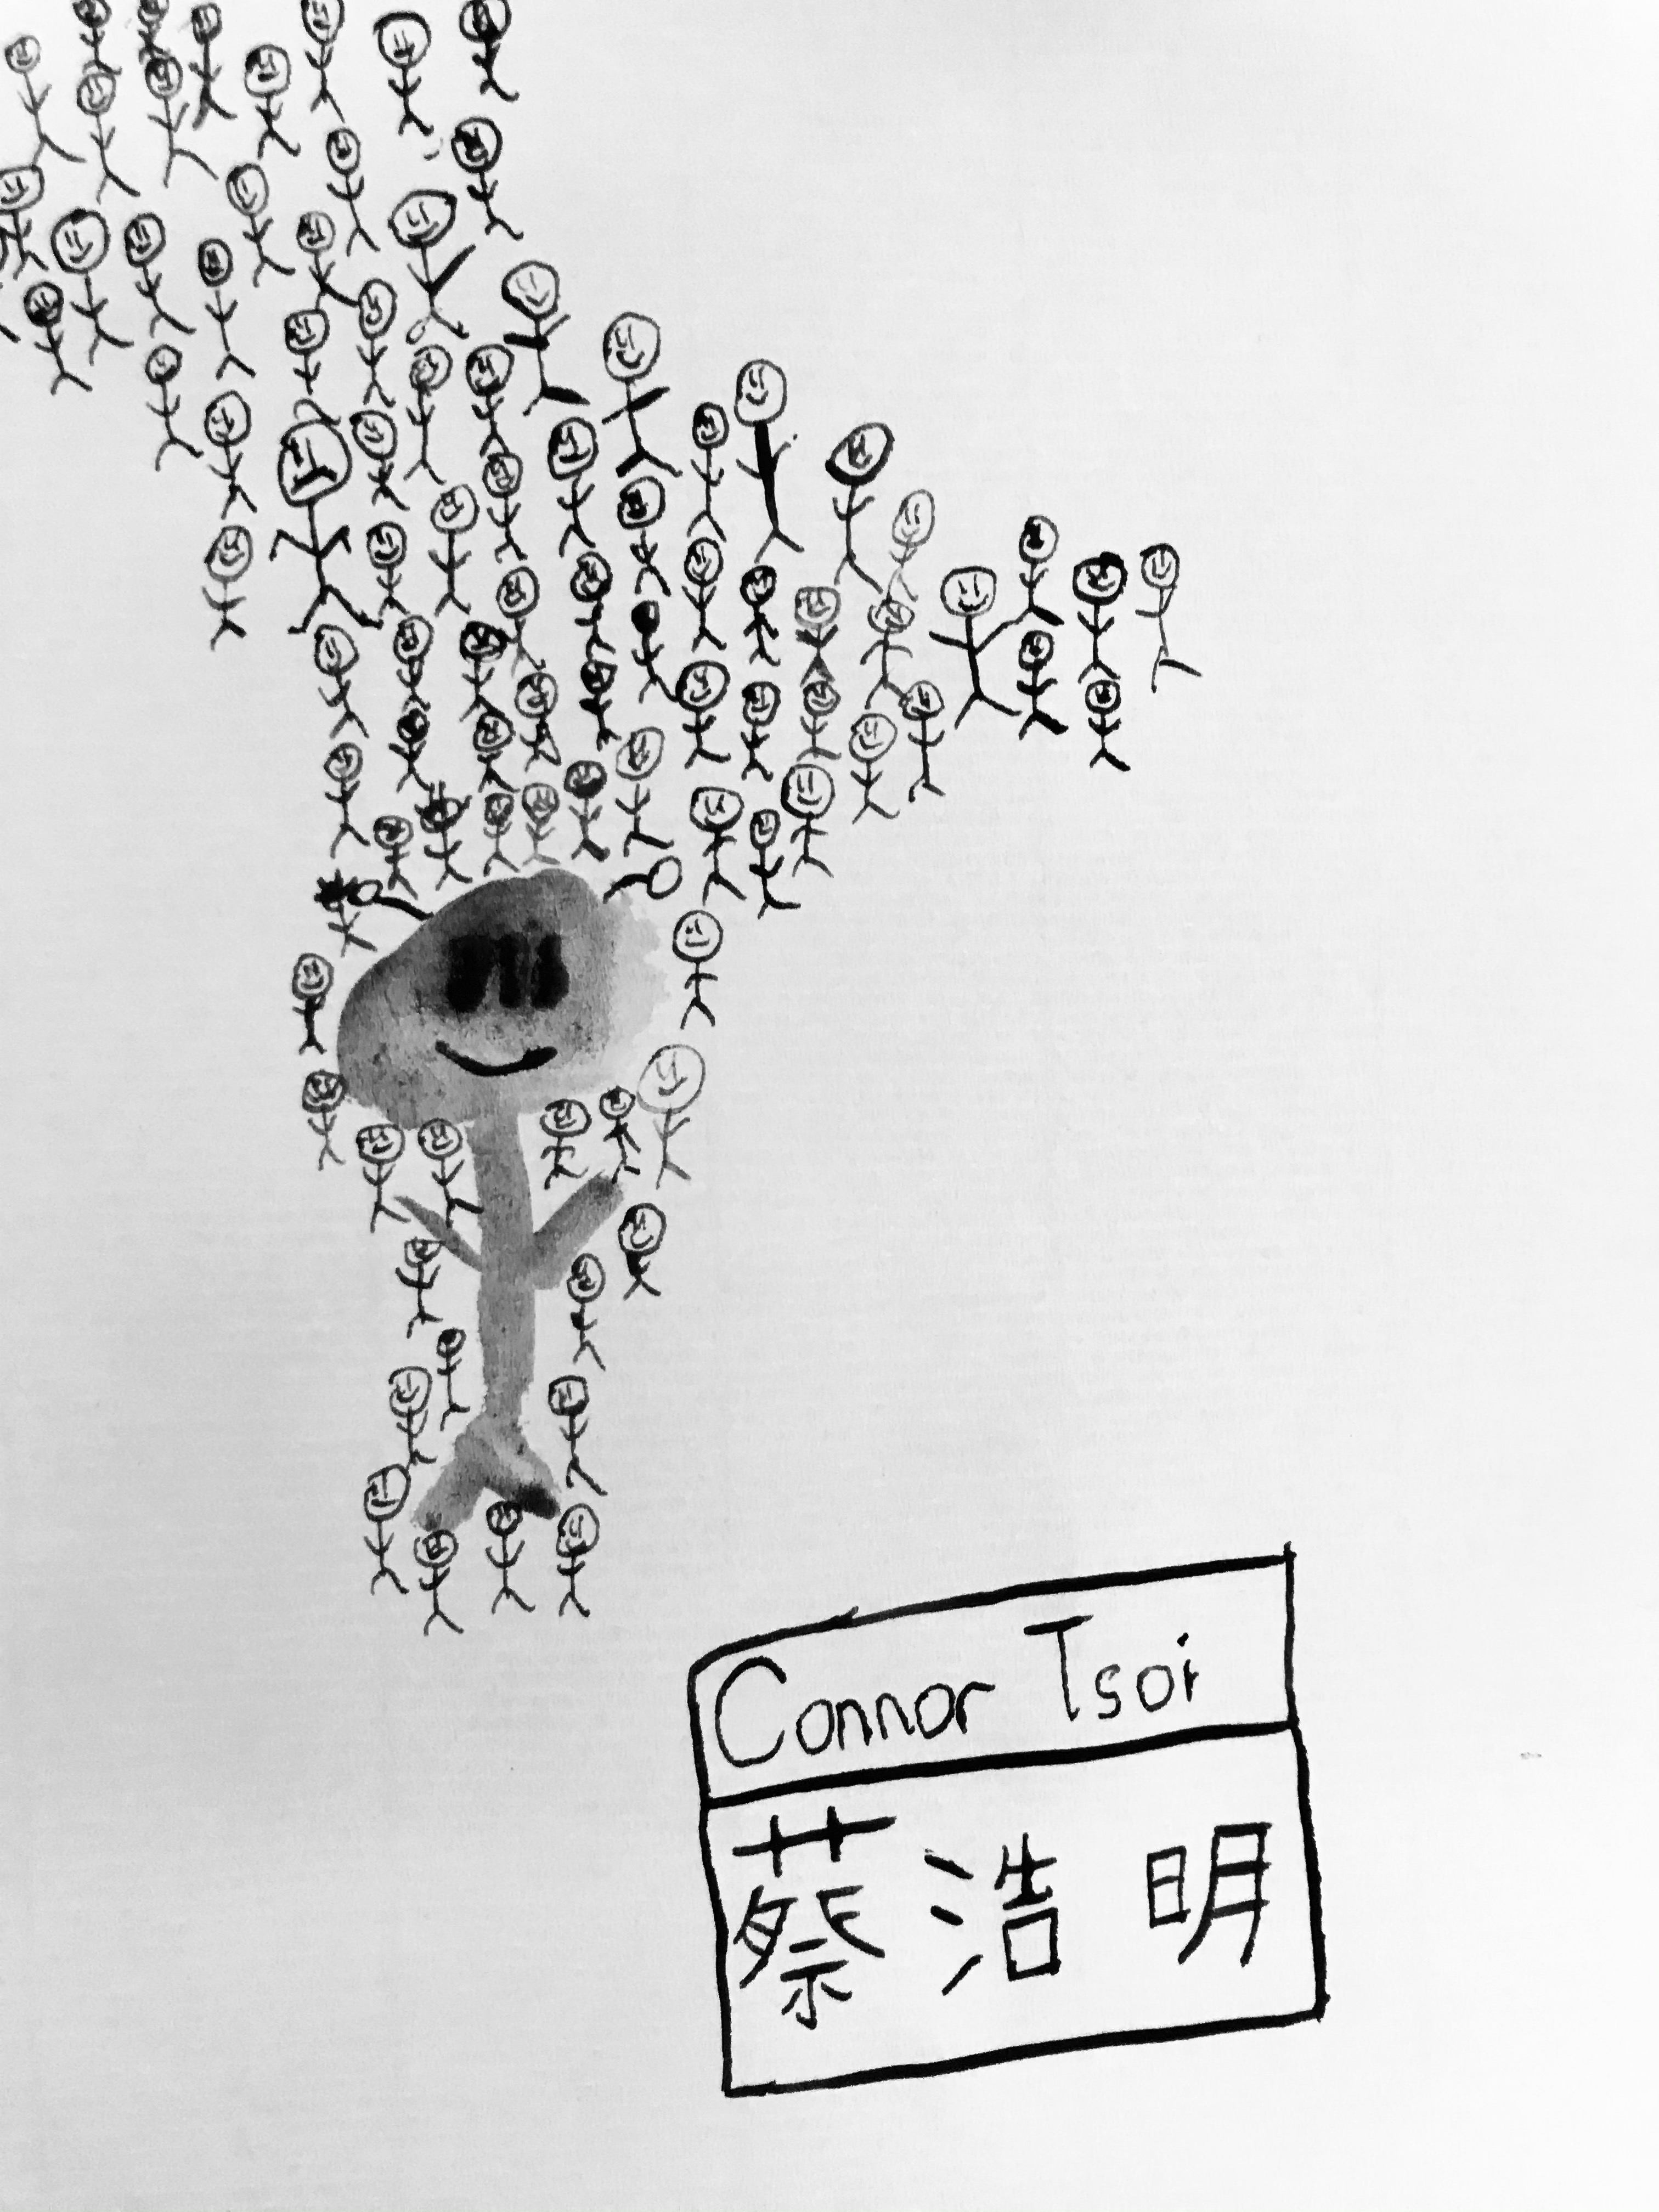 Connor Tsoi
蔡浩明